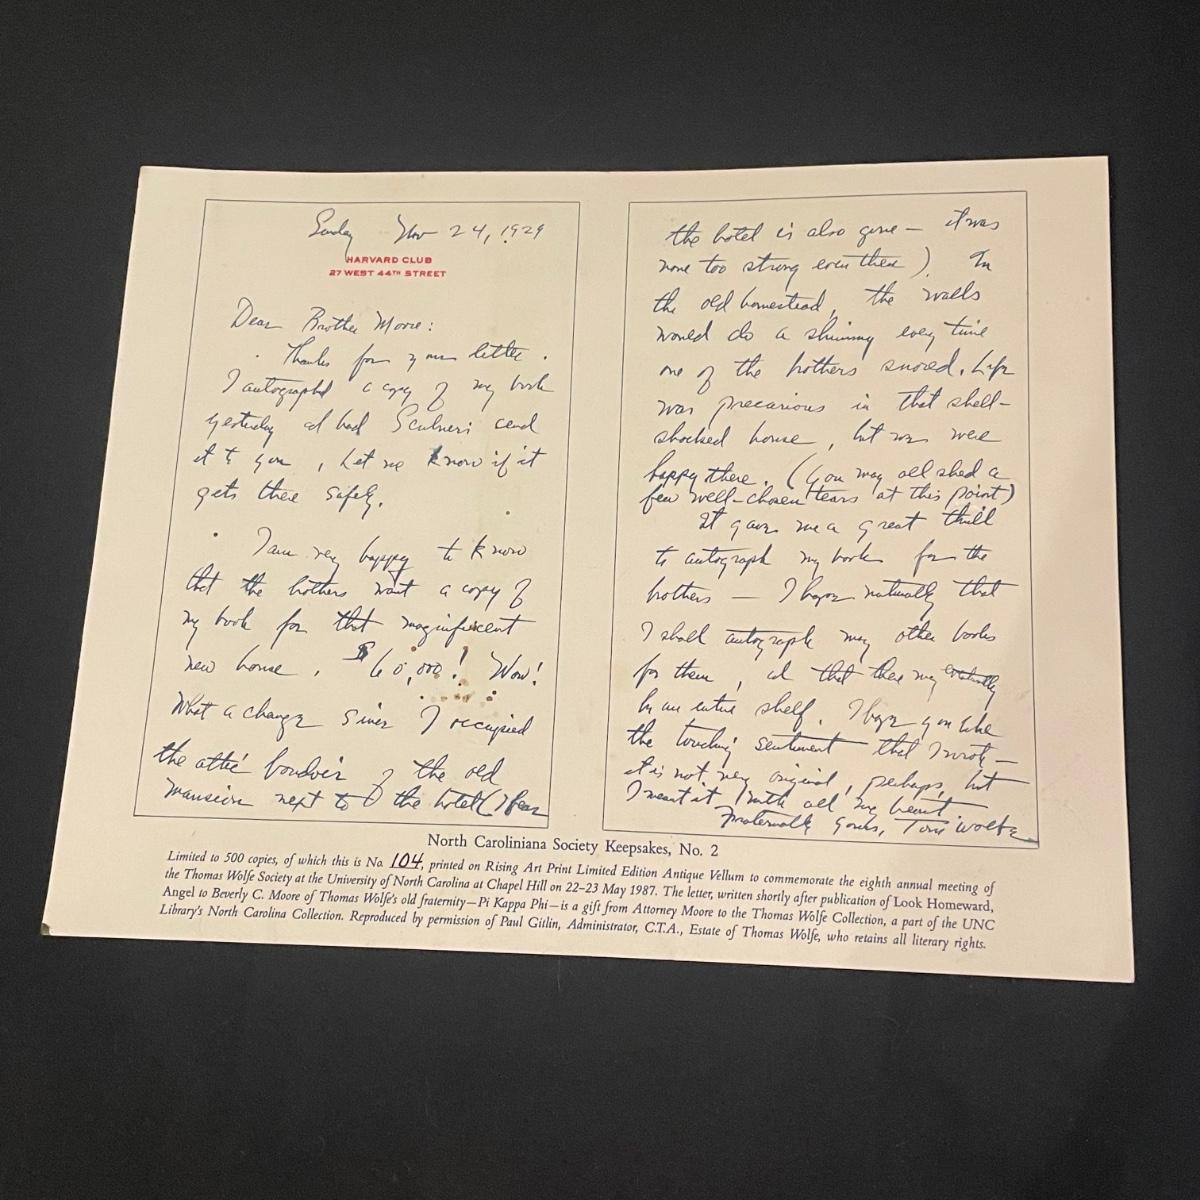 Sunday Nov 24, 1929
HARVARD CLUB
27 WEST 44TH STREET
Dear Brother Moore:
Thanks for your letter.
I autographed a copy of my book
yesterday and had Scribners send
it to you, Let me know if it
gets there safely.
I am very happy to know
that the brothers want a copy of
my book for that magnificent
new house. $60,000! Wow!
What a change since I occupied
the attic boudoir of the old
mansion next to the hotel (I hear
the hotel is also gone — it was
none too strong even then). In
the old homestead, the walls
would do a shimmy every time
one of the brothers snored. Life
was precarious in that shell-
shocked house, but we were
happy there. (You may all shed a
few well-chosen tears at this point)
It gave me a great thrill
to autograph my book for the
brothers — I hope naturally that
I shall autograph my other books
for them, and that there may eventually
be an entire shelf. I hope you like
the touching sentiment that I wrote —
it is not very original, perhaps, but
I meant it with all my heart.
Fraternally yours, Tom Wolfe
North Caroliniana Society Keepsakes, No. 2
Limited to 500 copies, of which this is No. 104, printed on Rising Art Print Limited Edition Antique Vellum to commemorate the eighth annual meeting of
the Thomas Wolfe Society at the University of North Carolina at Chapel Hill on 22–23 May 1987. The letter, written shortly after publication of Look Homeward,
Angel to Beverly C. Moore of Thomas Wolfe's old fraternity—Pi Kappa Phi—is a gift from Attorney Moore to the Thomas Wolfe Collection, a part of the UNC
Library's North Carolina Collection. Reproduced by permission of Paul Gitlin, Administrator, C.T.A., Estate of Thomas Wolfe, who retains all literary rights.